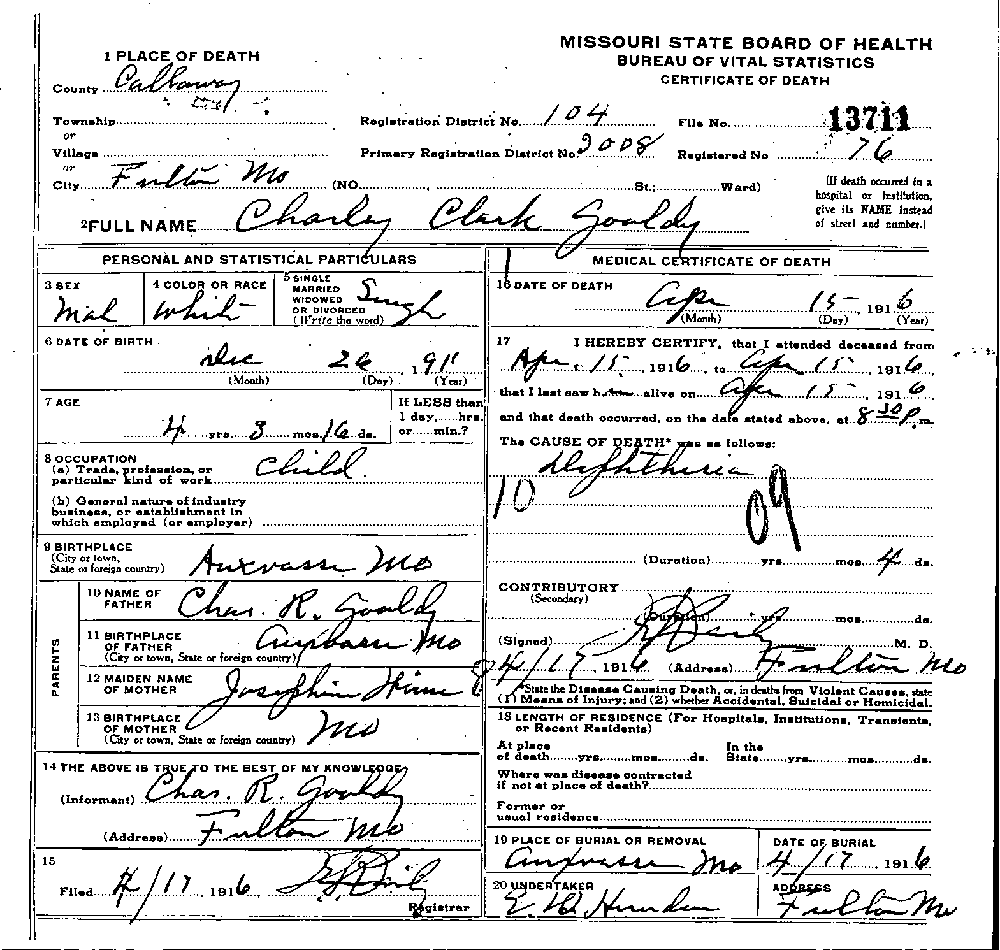 MISSOURI STATE BOARD OF HEALTH
BUREAU OF VITAL STATISTICS
CERTIFICATE OF DEATH
1 PLACE OF DEATH
County Callaway
Township
or
Village
or
City Fulton Mo (NO. St.; Ward)
Registration District No. 104
Primary Registration District No. 3008
File No. 13711
Registered No 76
(If death occurred in a
hospital or institution,
give its NAME instead
of street and number.)
2 FULL NAME Charley Clark Gouldy
PERSONAL AND STATISTICAL PARTICULARS
3 SEX
Mal
4 COLOR OR RACE
White
5 SINGLE
MARRIED
WIDOWED
OR DIVORCED
(Write the word)
Singl
6 DATE OF BIRTH
Dec 26, 1911
(Month) (Day) (Year)
7 AGE
4 yrs. 3 mos. 16 ds.
If LESS than
1 day, hrs.
or min.?
8 OCCUPATION
(a) Trade, profession, or
particular kind of work Child
(b) General nature of industry
business, or establishment in
which employed (or employer)
9 BIRTHPLACE
(City or town,
State or foreign country)
Auxvasse Mo
PARENTS
10 NAME OF
FATHER
Chas. R. Gouldy
11 BIRTHPLACE
OF FATHER
(City or town, State or foreign country)
Auxvasse Mo
12 MAIDEN NAME
OF MOTHER
Josephin
13 BIRTHPLACE
OF MOTHER
(City or town, State or foreign country)
Mo
14 THE ABOVE IS TRUE TO THE BEST OF MY KNOWLEDGE
(Informant) Chas. R. Gouldy
(Address) Fulton Mo
15
Filed 4/17 1916
Registrar
MEDICAL CERTIFICATE OF DEATH
16 DATE OF DEATH
Apr 15, 1916
(Month) (Day) (Year)
17 I HEREBY CERTIFY, that I attended deceased from
Apr. 15, 1916, to Apr 15, 1916,
that I last saw him alive on Apr 15, 1916
and that death occurred, on the date stated above, at 8 30 P. m.
The CAUSE OF DEATH* was as follows:
Diphtheria
10
09
(Duration) yrs. mos. 4 ds.
CONTRIBUTORY
(Secondary)
(Duration) yrs. mos. ds.
(Signed) M. D.
4/17, 1916 (Address) Fulton Mo
*State the Disease Causing Death, or, in deaths from Violent Causes, state
(1) Means of Injury; and (2) whether Accidental, Suicidal or Homicidal.
18 LENGTH OF RESIDENCE (For Hospitals, Institutions, Transients,
or Recent Residents)
At place
of death yrs. mos. ds.
In the
State yrs. mos. ds.
Where was disease contracted
if not at place of death?
Former or
usual residence
19 PLACE OF BURIAL OR REMOVAL
Auxvasse Mo
DATE OF BURIAL
4/17, 1916
20 UNDERTAKER
ADDRESS
Fulton Mo